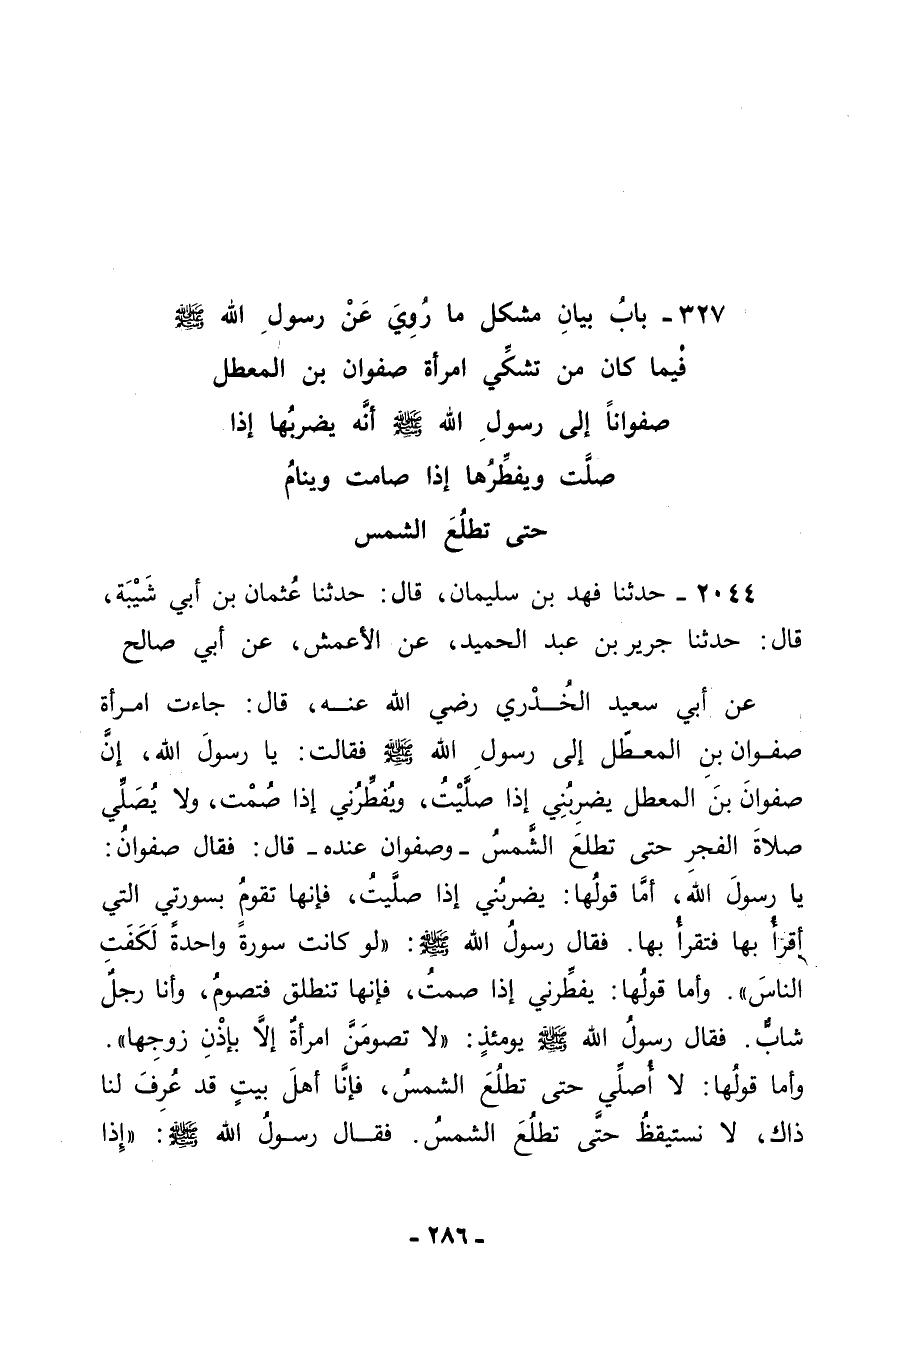 ٣٢٧ـ بابُ بيانِ مشكل ما رُوِيَ عَنْ رسولِ الله ﷺ
فيما كان من تشكِّي امرأة صفوان بن المعطل
صفواناً إلى رسولِ الله ﷺ أنَّه يضربُها إذا
صلَّت ويفطِّرُها إذا صامت وينامُ
حتى تطلُعَ الشمس
٢٠٤٤ ـ حدثنا فهد بن سليمان، قال: حدثنا عُثمان بن أبي شَيْبَة،
قال: حدثنا جرير بن عبد الحميد، عن الأعمش، عن أبي صالح
عن أبي سعيد الخُدْري رضي الله عنه، قال: جاءت امرأة
صفوان بنِ المعطّل إلى رسولِ الله ﷺ فقالت: يا رسولَ الله، إنَّ
صفوانَ بنَ المعطل يضربُنِي إذا صلَّيْتُ، ويُفطِّرُني إذا صُمْت، ولا يُصَلِّي
صلاةَ الفجرِ حتى تطلعَ الشَّمسُ ـ وصفوان عنده ـ قال: فقال صفوانُ:
يا رسولَ الله، أمَّا قولُها: يضربُني إذا صلَّيتُ، فإنها تقومُ بسورتي التي
أقرَأُ بها فتقرأُ بها. فقال رسولُ الله ﷺ: «لو كانت سورةً واحدةً لَكَفَتِ
الناسَ». وأما قولُها: يفطِّرني إذا صمتُ، فإنها تنطلق فتصومُ، وأنا رجلٌ
شابٌّ. فقال رسولُ الله ﷺ يومئذٍ: «لا تصومَنَّ امرأةٌ إلَّا بإذْنِ زوجِها».
وأما قولُها: لا أُصلِّي حتى تطلُعَ الشمسُ، فإنَّا أهلَ بيتٍ قد عُرِفَ لنا
ذاك، لا نستيقظُ حتَّى تطلُعَ الشمسُ. فقال رسولُ الله ﷺ: «إِذا
ـ ٢٨٦ ـ